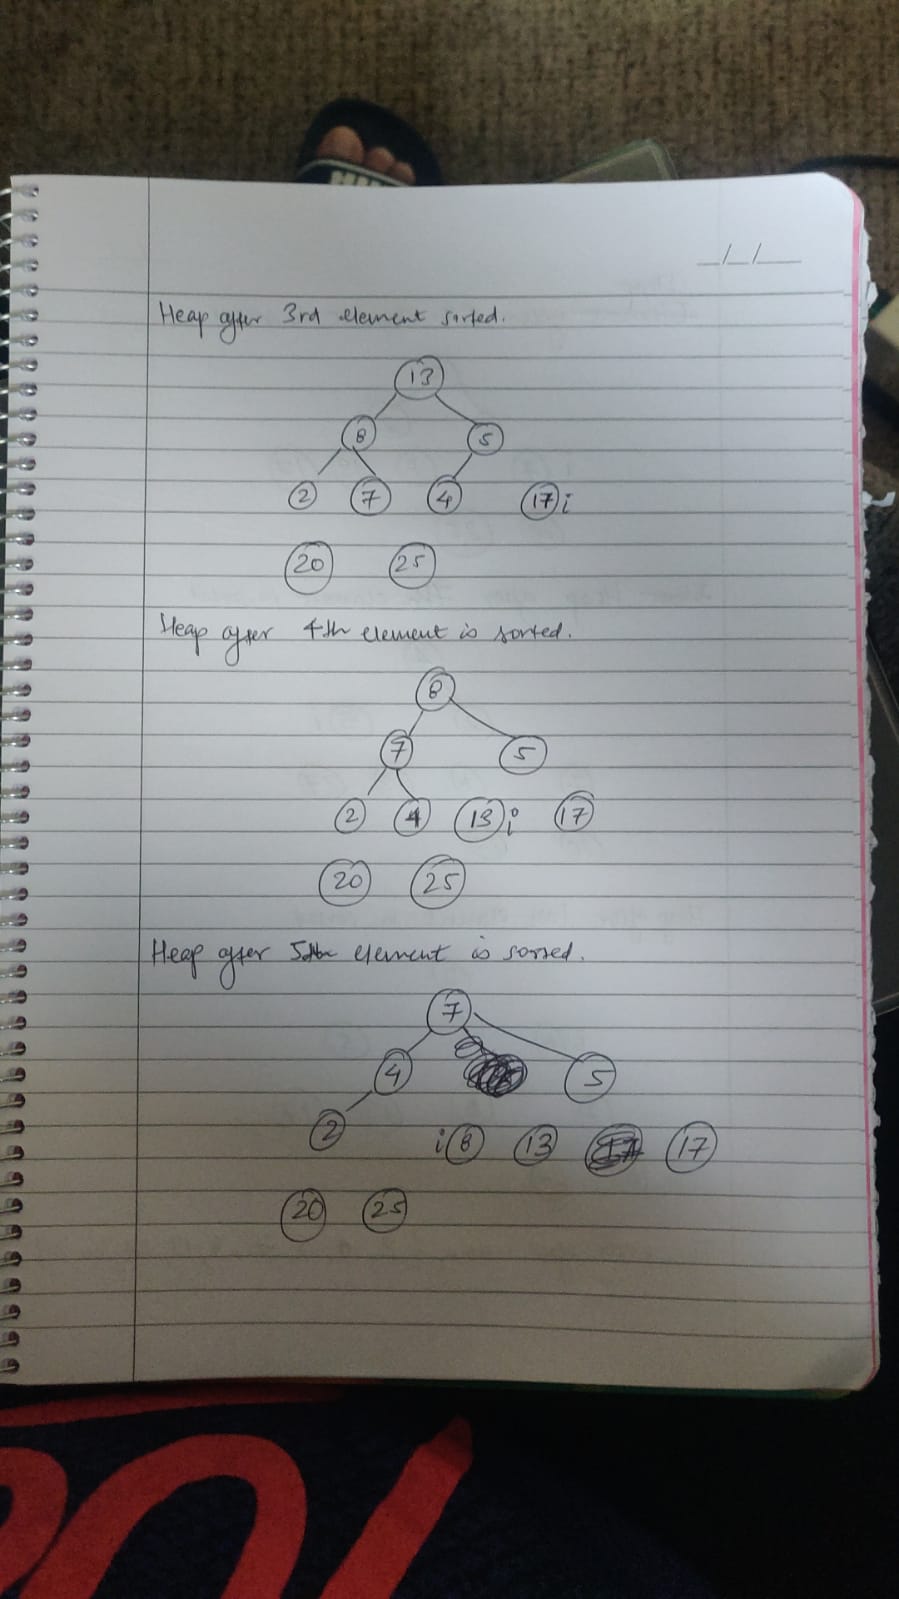 _/_/__
Heap after 3rd element sorted.
13
8 5
2 7 4 17 i
20 25
Heap after 4th element is sorted.
8
7 5
2 4 13 i 17
20 25
Heap after 5th element is sorted.
7
4 5
2 i 8 13 17
20 25